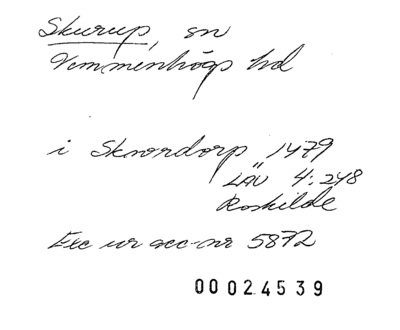 Skurup, sn
Vemmenhögs hd
i Sknordorp 1479
LÄU 4:248
Roskilde
Exc ur acc-nr 5872
00024539